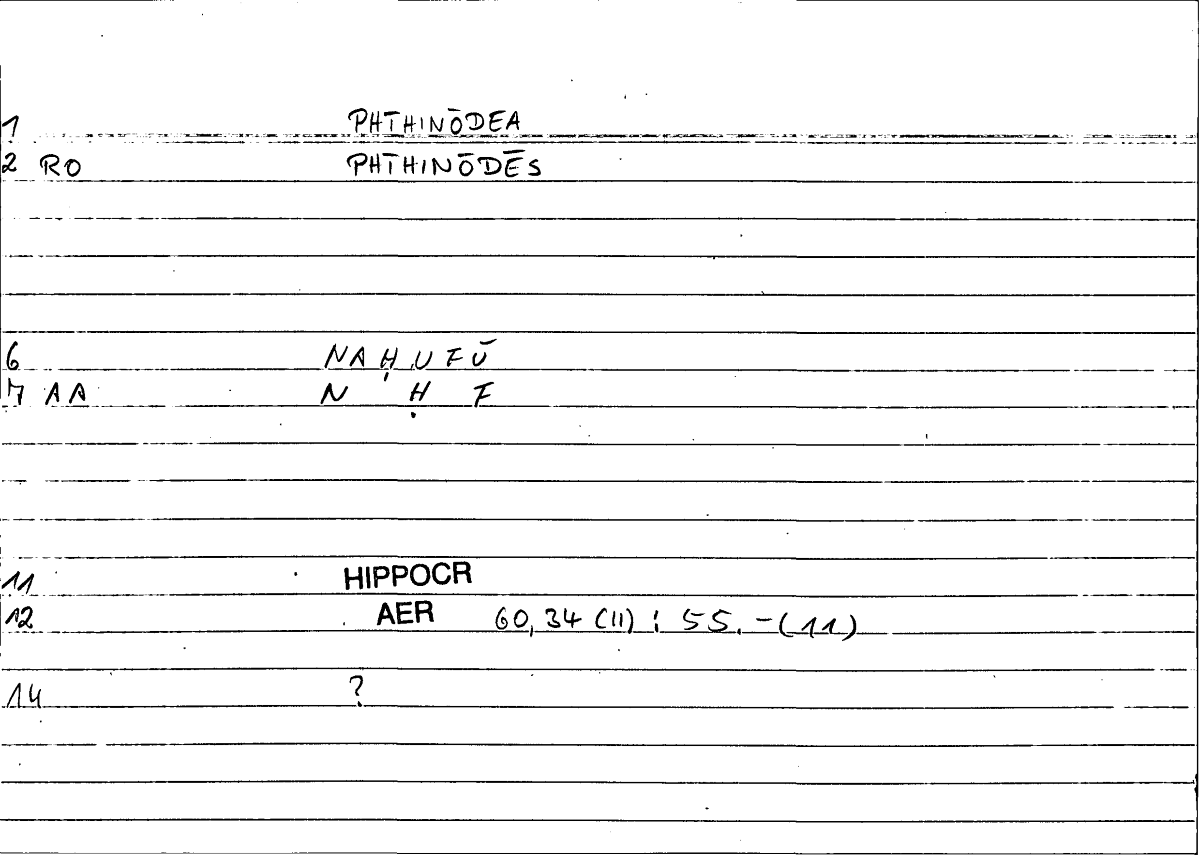 1 PHTHINŌDEA
2 RO PHTHINŌDĒS
6 NAḤUFŪ
7 AA N Ḥ F
11 HIPPOCR
12 AER 60,34 (11) : 55.-(11)
14 ?